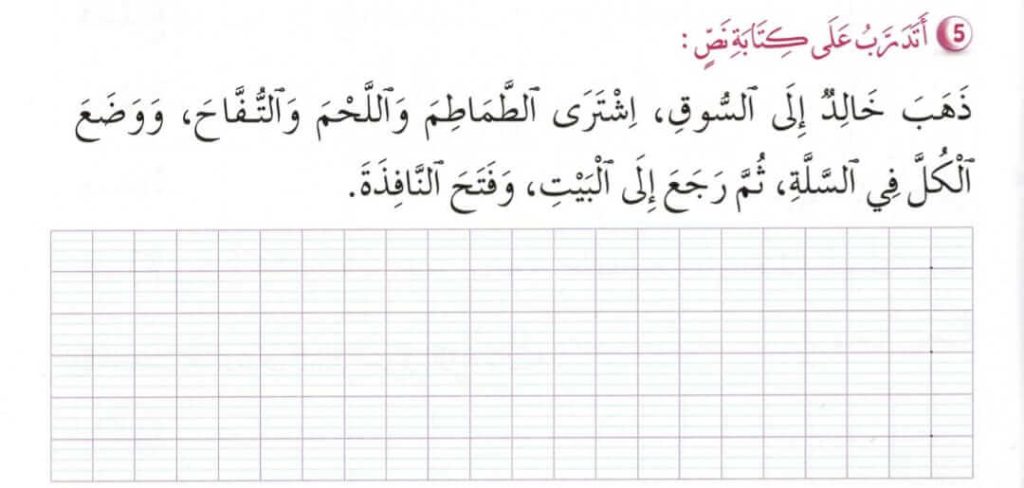 5 أَتَدَرَّبُ عَلَى كِتَابَةِ نَصٍّ :
ذَهَبَ خَالِدٌ إِلَى ٱلسُّوقِ، اِشْتَرَى ٱلطَّمَاطِمَ وَٱللَّحْمَ وَٱلتُّفَّاحَ، وَوَضَعَ
ٱلْكُلَّ فِي ٱلسَّلَّةِ، ثُمَّ رَجَعَ إِلَى ٱلْبَيْتِ، وَفَتَحَ ٱلنَّافِذَةَ.